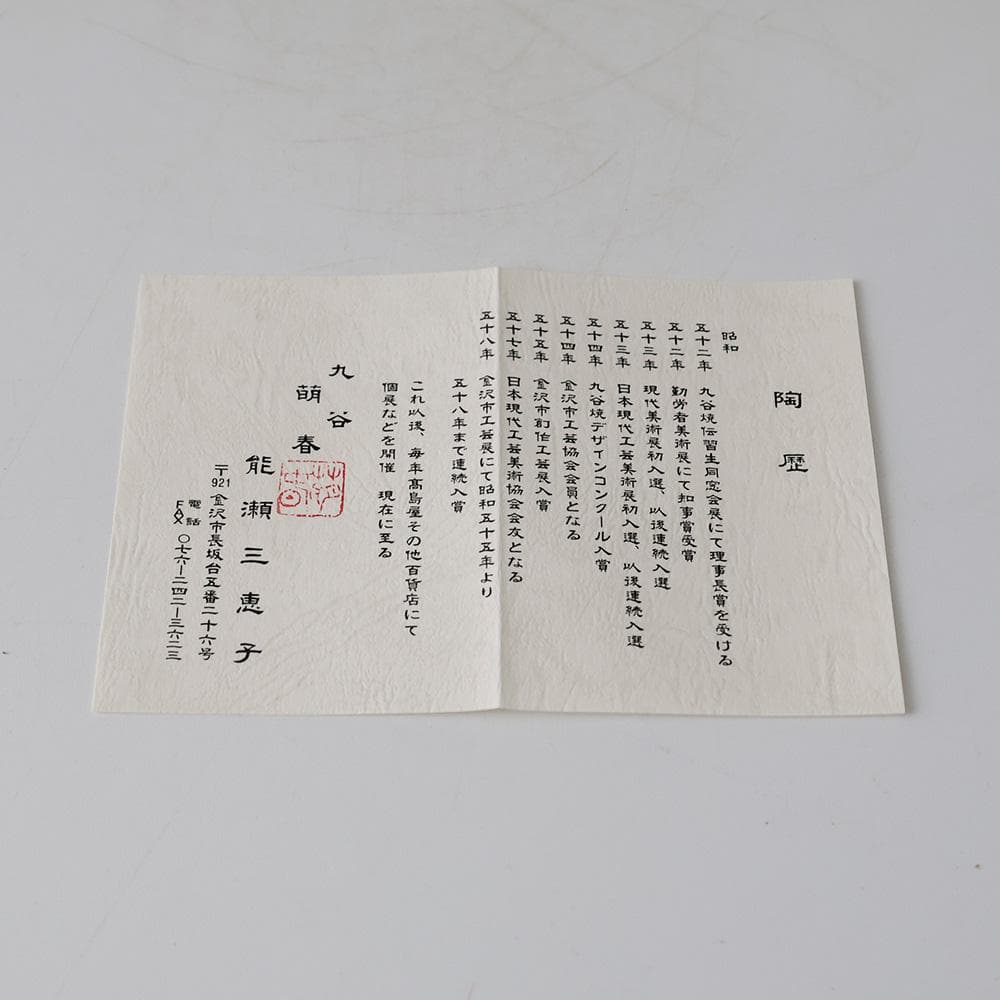 陶歴
昭和
五十二年 九谷焼伝習生同窓会展にて理事長賞を受ける
五十二年 勤労者美術展にて知事賞受賞
五十三年 現代美術展初入選、以後連続入選
五十三年 日本現代工芸美術展初入選、以後連続入選
五十四年 九谷焼デザインコンクール入賞
五十四年 金沢市工芸協会会員となる
五十五年 金沢市創作工芸展入賞
五十七年 日本現代工芸美術協会会友となる
五十八年 金沢市工芸展にて昭和五十五年より
五十八年まで連続入賞
これ以後、毎年髙島屋その他百貨店にて
個展などを開催 現在に至る
九谷
萌春
能瀬三恵子
〒921 金沢市長坂台五番二十六号
電話
FAX 〇七六ー二四二ー三六二三